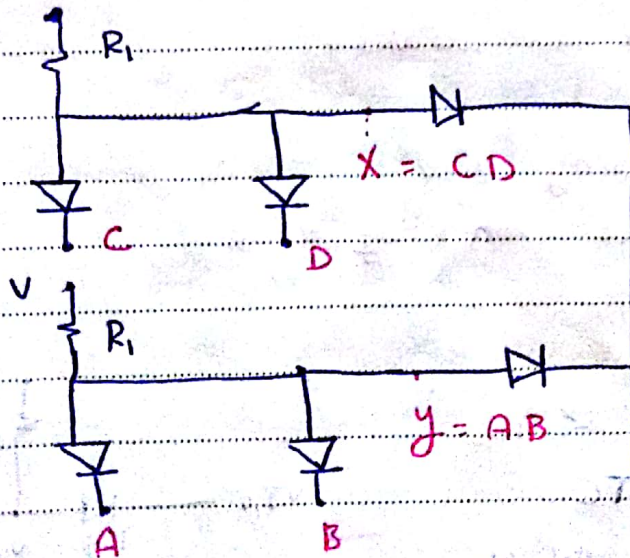 R1
X = CD
C
D
V
R1
y = A.B
A
B